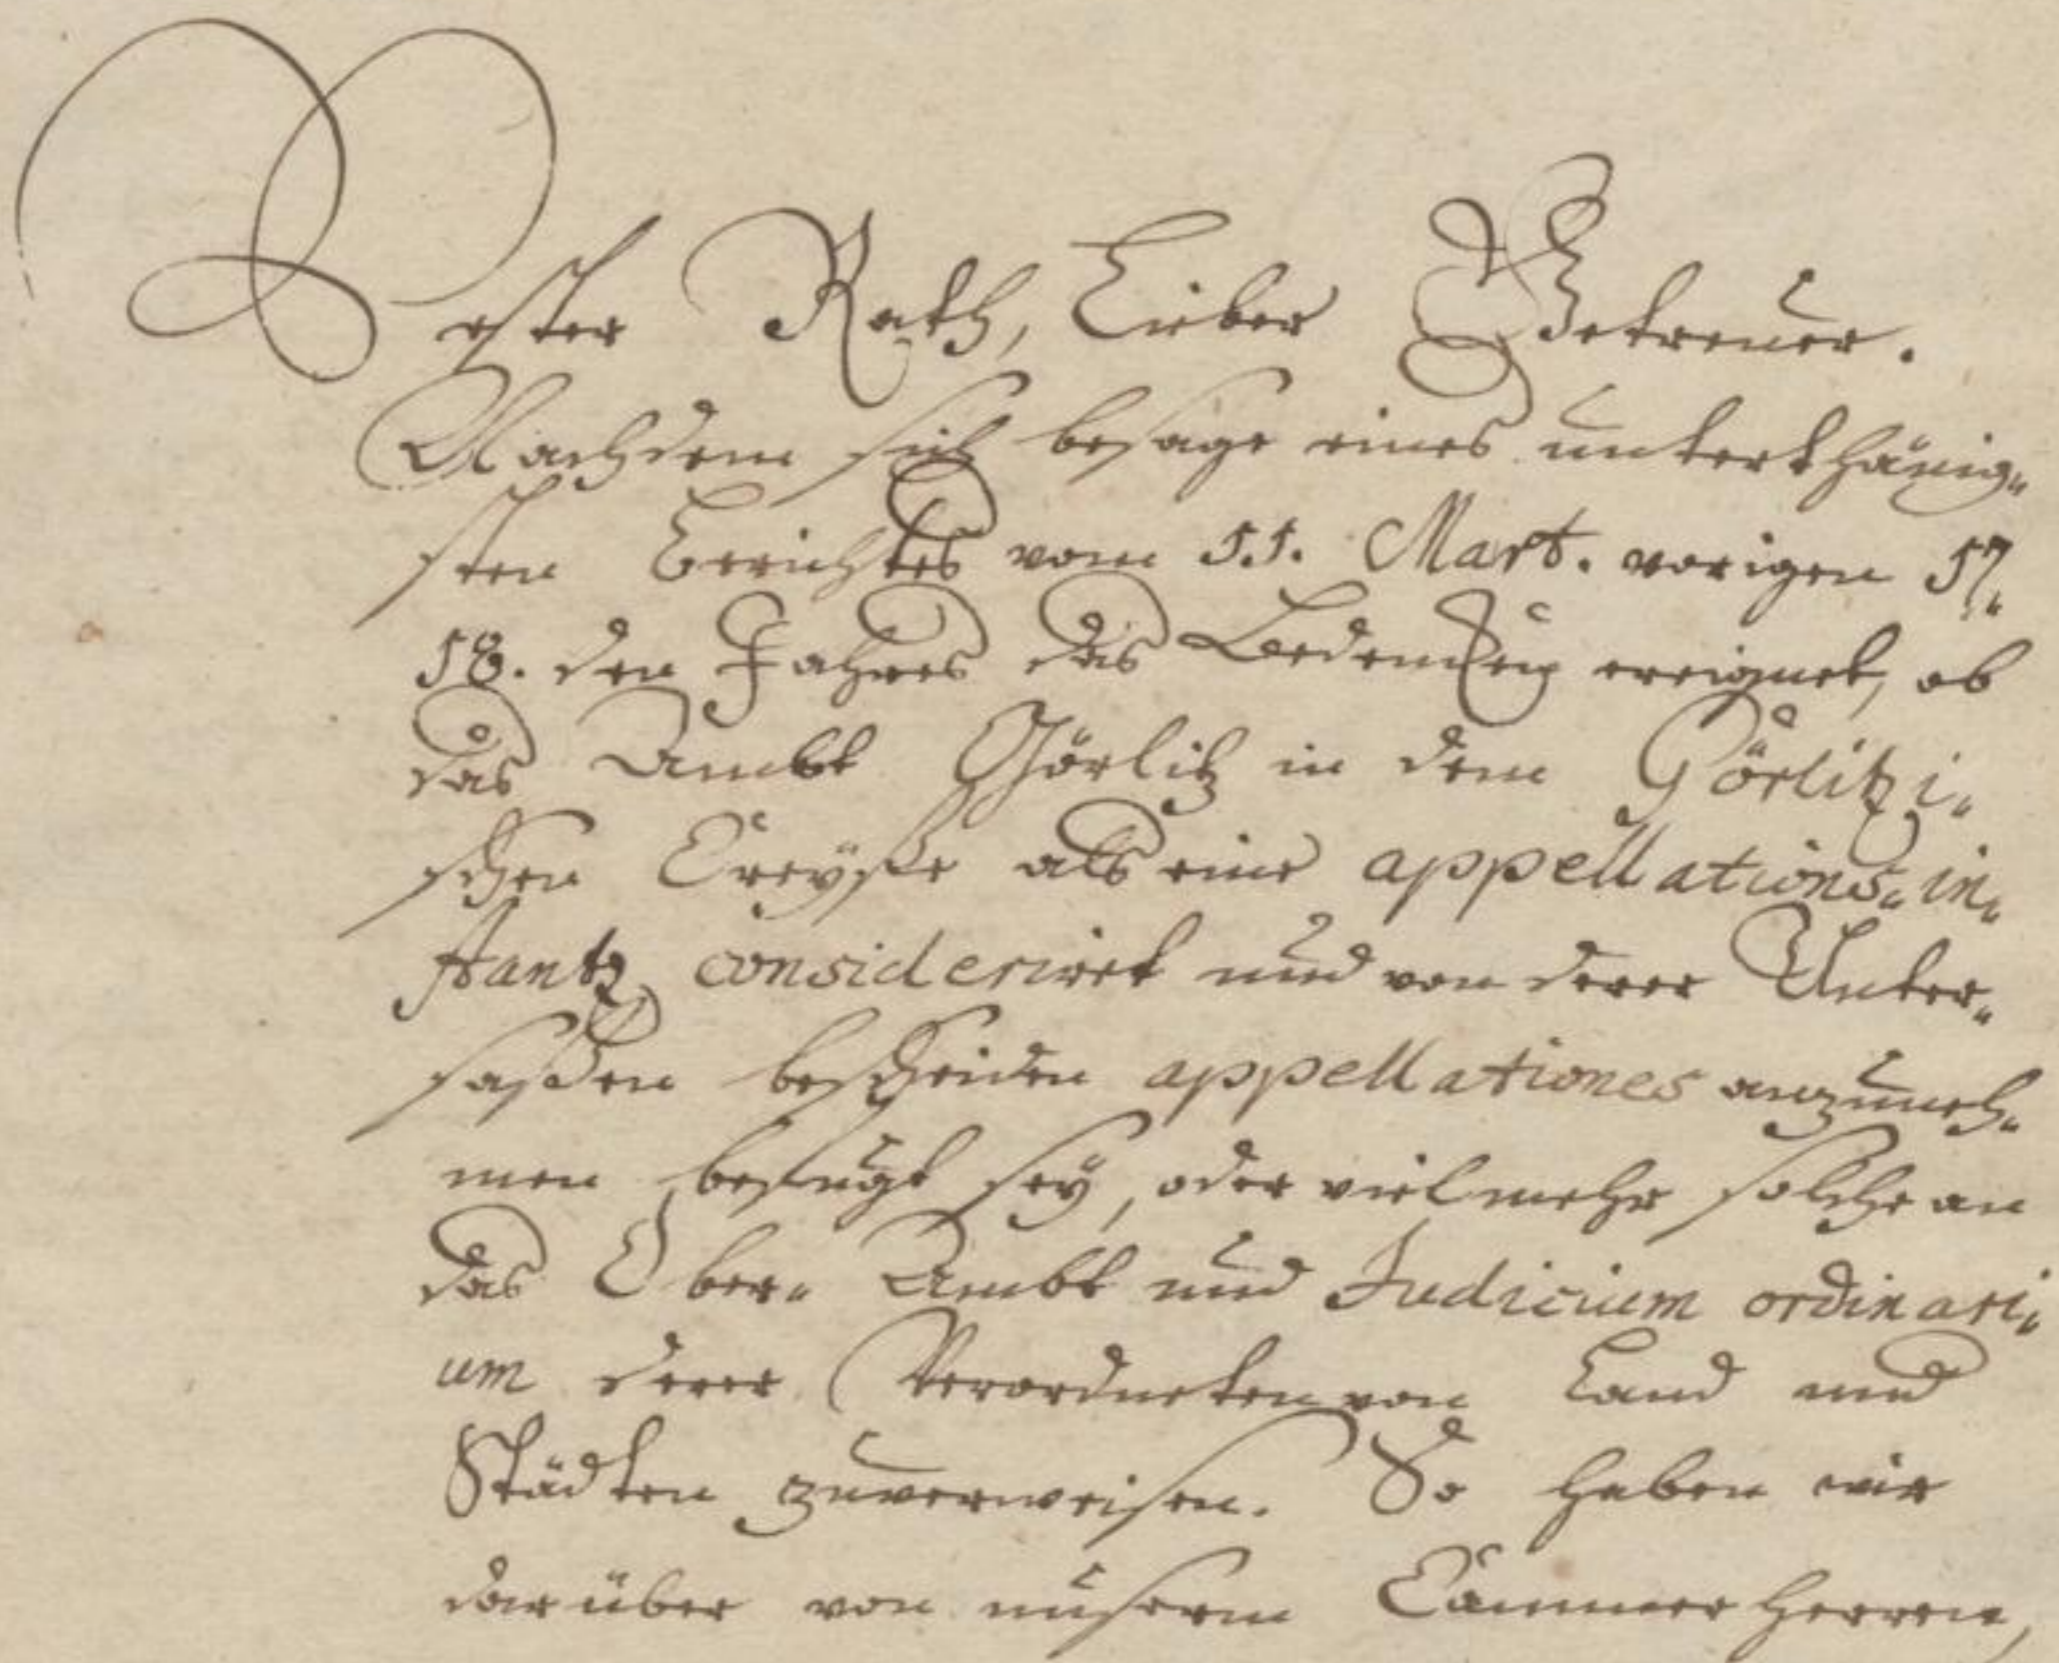 Vester Rath, Lieber Getreuer.
Nachdem sich besage eines unterthänig„
sten Berichtes vom 11. Mart. vorigen 17„
18. den Jahres das Bedencken ereignet, ob
das Ambt Görlitz in dem Görlitzi„
schen Creyße als eine appellations„ in„
stantz consideriret und von derer Unter„
saßen bescheiden appellationes anzuneh„
men befugt sey, oder vielmehr solche an
das Ober„ Ambt und Judicium ordinari„
um derer Verordneten von Land und
Städten zuverweisen. So haben wir
darüber von unserm Cammer Herren,